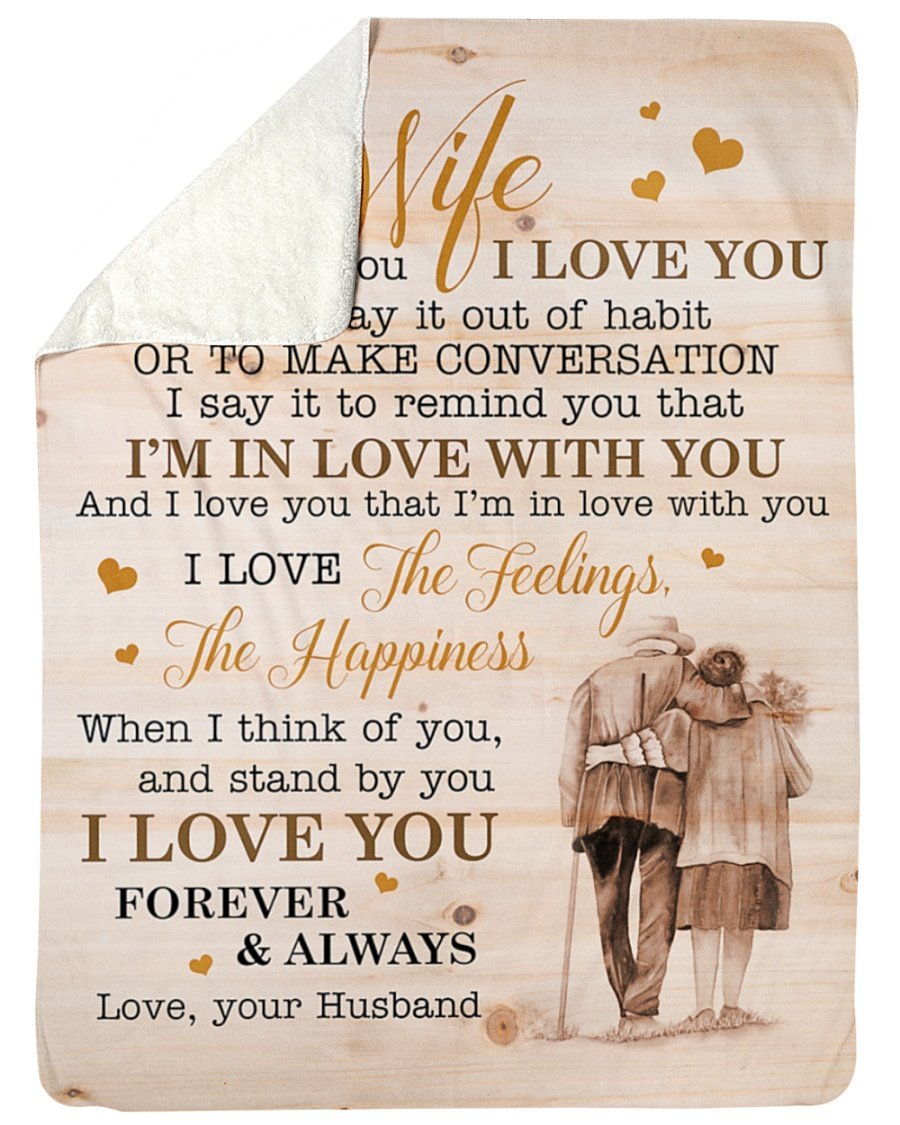 Wife
I LOVE YOU
it out of habit
OR TO MAKE CONVERSATION
I say it to remind you that
I'M IN LOVE WITH YOU
And I love you that I'm in love with you
I LOVE The Feelings,
The Happiness
When I think of you,
and stand by you
I LOVE YOU
FOREVER
& ALWAYS
Love, your Husband